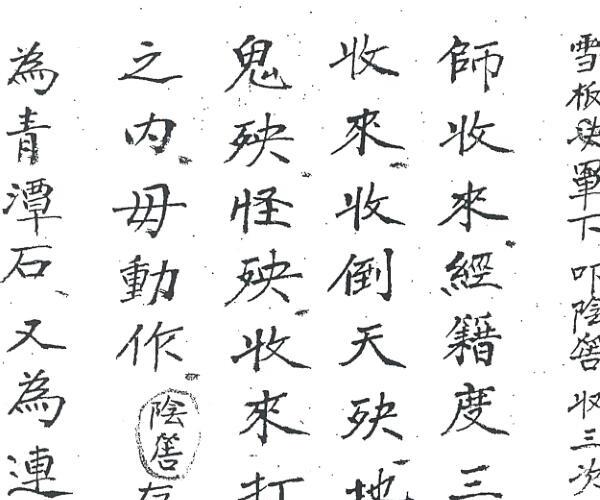 雪板決軍下 吖陰窖 收三次
師收來經籍度三
收來收倒天殃地
鬼殃怪殃收來打
之內毋動作 陰窖
為青潭石又為連